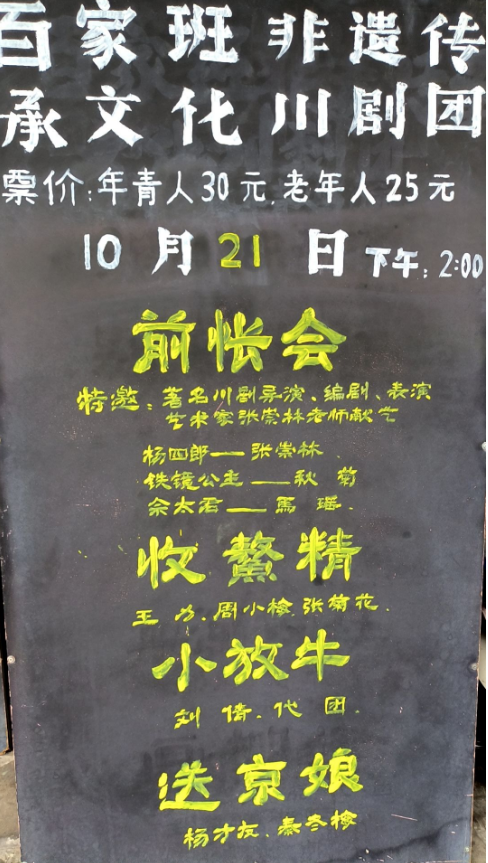 百家班非遗传
承文化川剧团
票价:年青人30元.老年人25元
10月21日下午:2:00
前帐会
特邀:著名川剧导演、编剧、表演
艺术家张崇林老师献艺
杨四郎——张崇林
铁镜公主——秋菊
佘太君——馬瑶.
收鳌精
王力.周小梅.张菊花.
小放牛
刘倩.代团.
送京娘
杨才友、秦冬梅